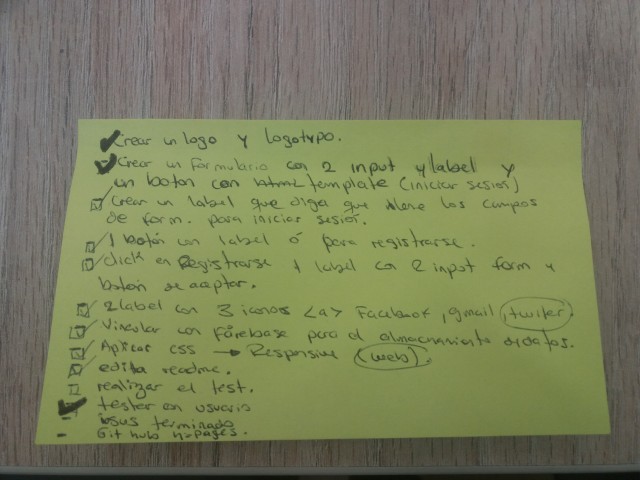 Crear un logo y logotipo.
Crear un formulario con 2 input y label y
un boton con html template (iniciar sesión)
Crear un label que diga que llene los campos
de form. para iniciar sesión.
1 botón con label ó para registrarse.
click en Registrarse 1 label con 2 input form y
botón de aceptar.
2 label con 3 iconos <a> Facebook, gmail, twiter
Vincular con firebase para el almacnamiento de datos.
Aplicar css → Responsive (web).
edita readme.
realizar el test.
testear en usuario
terminado
Git hub pages.